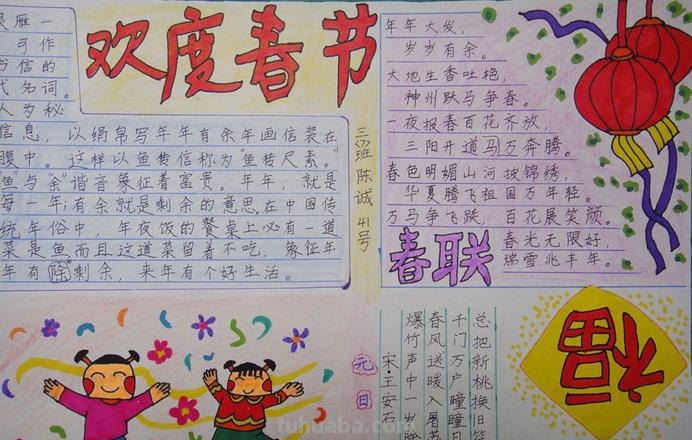 欢度春节
雁一
可作
书信的
代名词。
人为秘
信息，以绢帛写年年有余年画信装在
腹中。这样以鱼传信称为“鱼传尺素。”
“鱼”与“余”谐音象征着富贵。年年，就是
每一年；有余就是剩余的意思。在中国传
统年俗中，年夜饭的餐桌上必有一道
菜是鱼，而且这道菜留着不吃，象征年
年有除剩余，来年有个好生活。
三(7)班 陈诚 41号
年年大发，
岁岁有余。
大地生香吐艳，
神州跃马争春。
一夜报春百花齐放，
三阳开道马万奔腾。
春色明媚山河披锦绣，
华夏腾飞祖国万年轻。
万马争飞跃，百花展笑颜。
春光无限好，
瑞雪兆丰年。
春联
元日
宋·王安石
爆竹声中一岁除
春风送暖入
千门万户曈曈日
总把新桃换旧符
福
tuhuaba.com